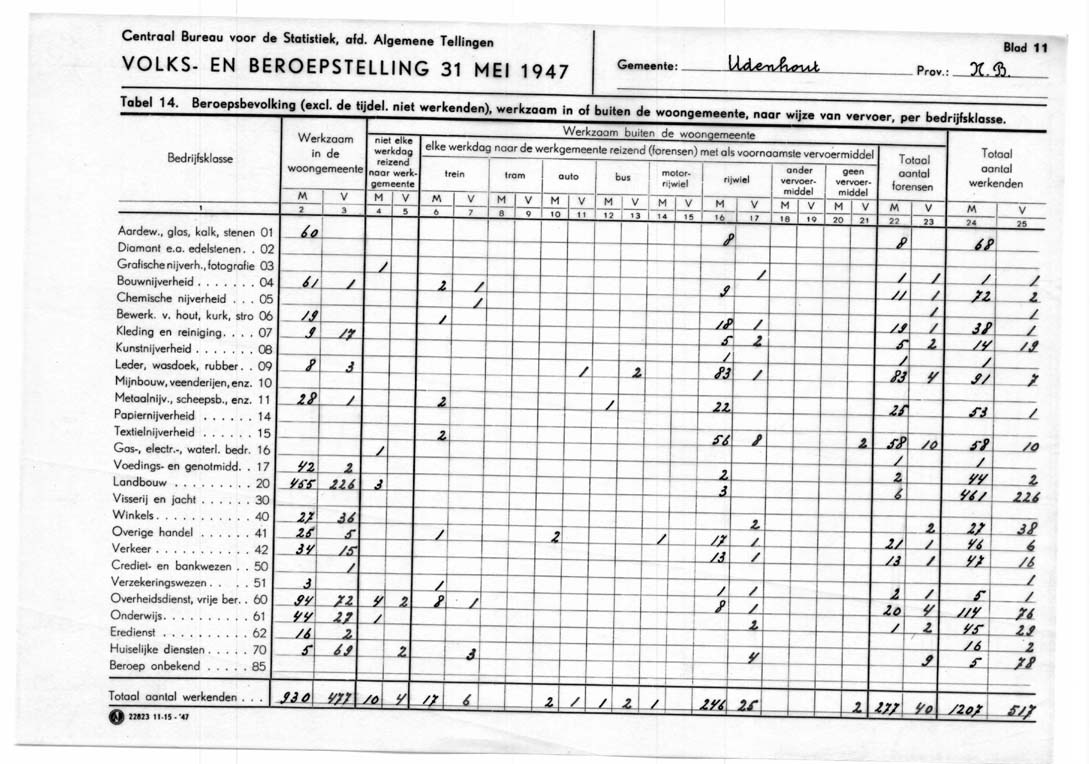 Centraal Bureau voor de Statistiek, afd. Algemene Tellingen
Blad 11
VOLKS- EN BEROEPSTELLING 31 MEI 1947
Gemeente: Udenhout
Prov.: N.B.
Tabel 14. Beroepsbevolking (excl. de tijdel. niet werkenden), werkzaam in of buiten de woongemeente, naar wijze van vervoer, per bedrijfsklasse.
Bedrijfsklasse
Werkzaam in de woongemeente
Werkzaam buiten de woongemeente
niet elke werkdag reizend naar werk-gemeente
elke werkdag naar de werkgemeente reizend (forensen) met als voornaamste vervoermiddel
trein tram auto bus motor-rijwiel rijwiel ander vervoer-middel geen vervoer-middel
Totaal aantal forensen
Totaal aantal werkenden
M V M V M V M V M V M V M V M V M V M V M V M V
1 2 3 4 5 6 7 8 9 10 11 12 13 14 15 16 17 18 19 20 21 22 23 24 25
Aardew., glas, kalk, stenen 01 60 8 8 68
Diamant e.a. edelstenen . . 02
Grafische nijverh., fotografie 03 1 1 1 1 1 1
Bouwnijverheid . . . . . . 04 61 1 2 1 9 11 1 72 2
Chemische nijverheid . . . 05 1 1 1
Bewerk. v. hout, kurk, stro 06 19 1 18 1 19 1 38 1
Kleding en reiniging . . . . 07 9 17 5 2 5 2 14 19
Kunstnijverheid . . . . . . . 08 1 1 1
Leder, wasdoek, rubber . . 09 8 3 1 2 83 1 83 4 91 7
Mijnbouw, veenderijen, enz. 10
Metaalnijv., scheepsb., enz. 11 28 1 2 1 22 25 53 1
Papiernijverheid . . . . . . 14
Textielnijverheid . . . . . . 15 2 56 8 2 58 10 58 10
Gas-, electr.-, waterl. bedr. 16 1 1 1
Voedings- en genotmidd. . 17 42 2 2 2 44 2
Landbouw . . . . . . . . . 20 455 226 3 3 6 461 226
Visserij en jacht . . . . . . 30
Winkels . . . . . . . . . . . 40 27 36 2 2 27 38
Overige handel . . . . . . . 41 25 5 1 2 1 17 1 21 1 46 6
Verkeer . . . . . . . . . . . 42 34 15 13 1 13 1 47 16
Crediet- en bankwezen . . 50 1 1
Verzekeringswezen . . . . . 51 3 1 1 1 2 1 5 1
Overheidsdienst, vrije ber. . 60 94 72 4 2 8 1 8 1 20 4 114 76
Onderwijs . . . . . . . . . . 61 44 27 1 2 1 2 45 29
Eredienst . . . . . . . . . . 62 16 2 16 2
Huiselijke diensten . . . . . 70 5 69 2 3 4 9 5 78
Beroep onbekend . . . . . 85
Totaal aantal werkenden . . . 930 477 10 4 17 6 2 1 1 2 1 246 25 2 277 40 1207 517
22823 11-15 - '47